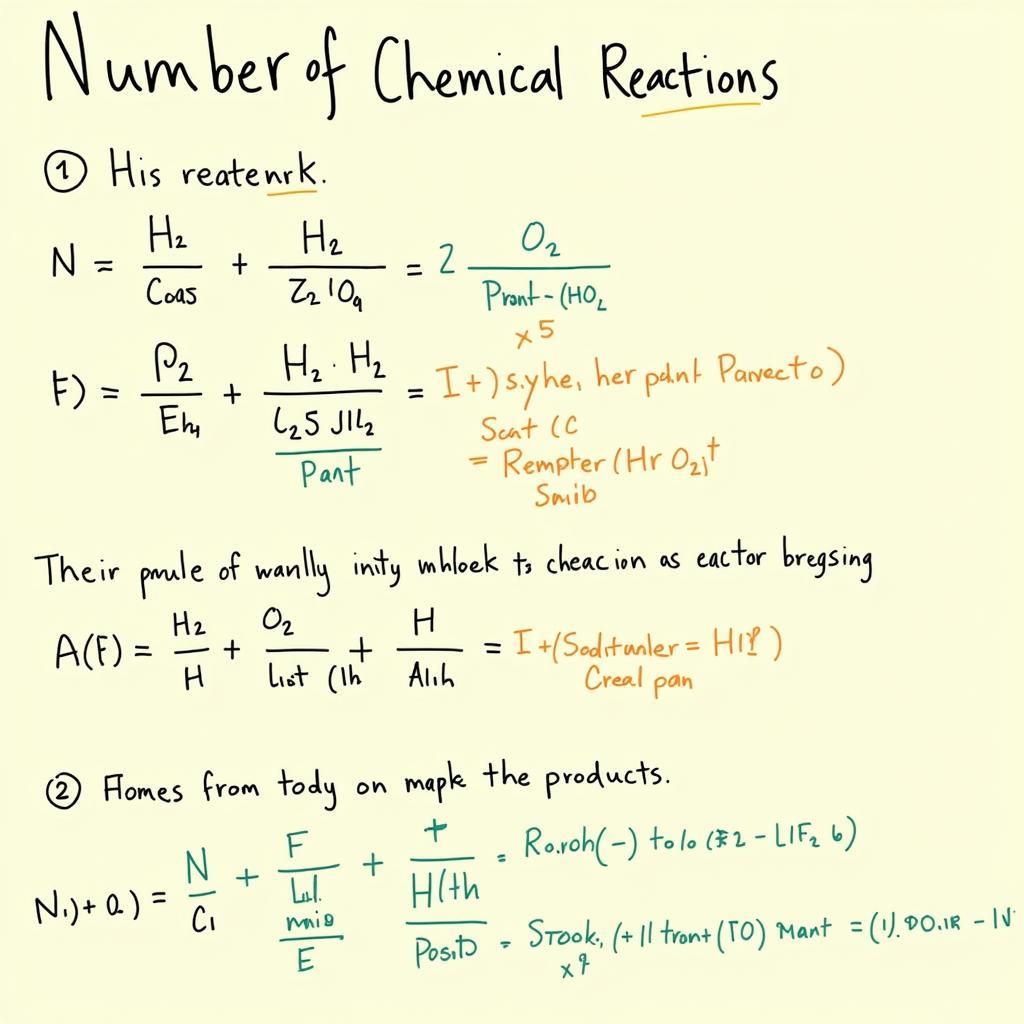 Number of Chemical Reactions
① His reatenrk.
N = H₂/Coas + H₂/Z₂10q = 2 O₂/Pront-(HO₂
x 5
F) = P₂/Eh + H₂·H₂/C₂5 JIL₂ = I+) s.yhe, her pdnt Parvecto)
Pant
Scnt (C
= Rempter (Hr O₂)†
Smib
Their pmule of wanlly inity mhloek ts cheacion as eactor bregsing
A(F) = H₂/H + O₂/List (Ih + H/Alih = I+(Soditunler = HI )
Creal pan
② Homes from tody on mapk the products.
N.)+ Q.) = N/C₁ + F/Lul. mnis/E + +/H(th/Posito = Ro.roh(-) tolo ( 2 - LIF₂ 6)
= Stook, (+ll tront (TO) Mant = (1). DO.IR - IV
x 9